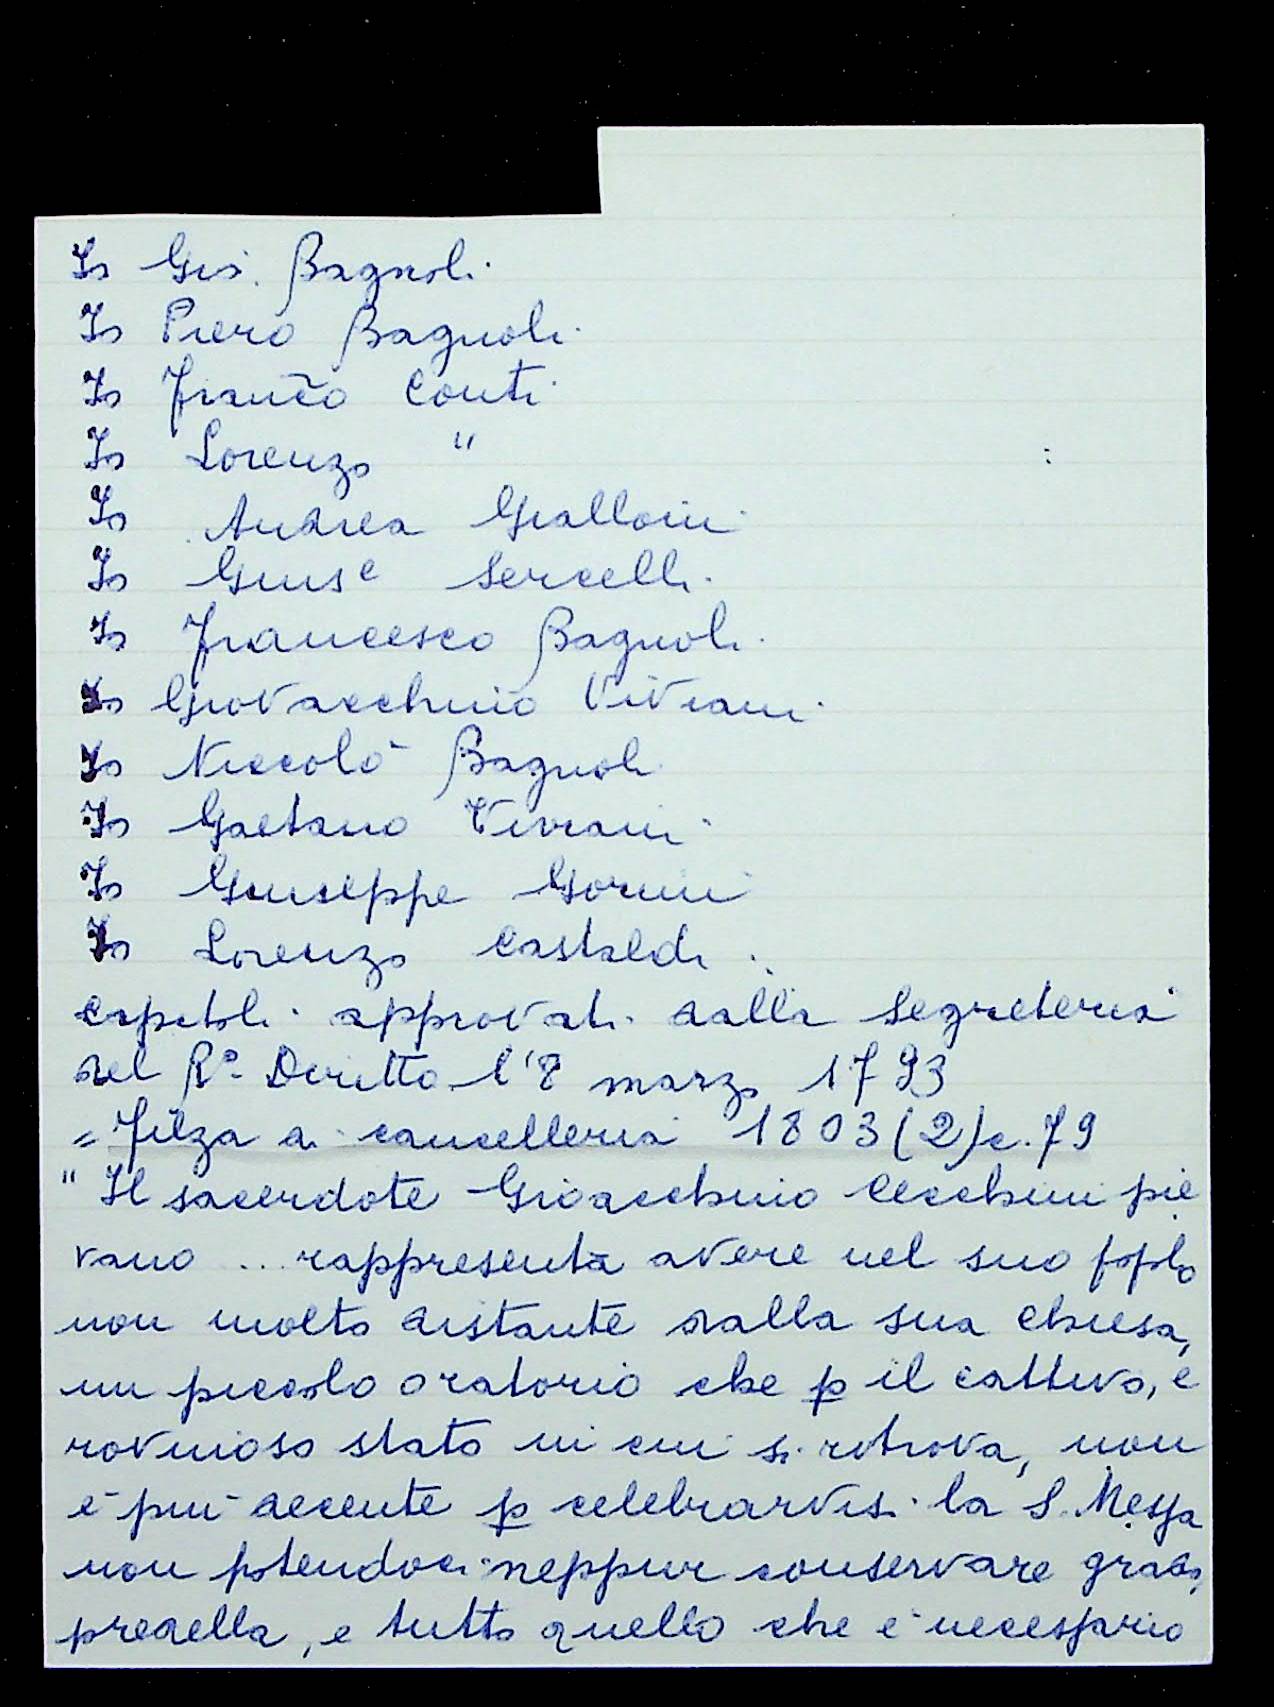 Io Gio. Bagnoli
Io Piero Bagnoli
Io Franco Conti
Io Lorenzo "
Io Andrea Gralloini
Io Giuse Sercelli
Io Francesco Bagnoli
Io Giovacchino Viviani
Io Niccolò Bagnoli
Io Gaetano Viviani
Io Giuseppe Gorini
Io Lorenzo Castaldi.
capitoli approvati dalla Segreteria
del Ro. Diritto l'8 marzo 1793
= Filza di cancelleria 1803 (2) c. 79
" Il sacerdote Gioacchino Cecchini pie
vano ... rappresenta avere nel suo popolo
non molto distante dalla sua chiesa,
un piccolo oratorio che p il cattivo, e
rovinoso stato in cui si ritrova, non
è più decente p celebrarvisi la S. Messa
non potendoci neppur conservare grado,
predella, e tutto quello che è necessario